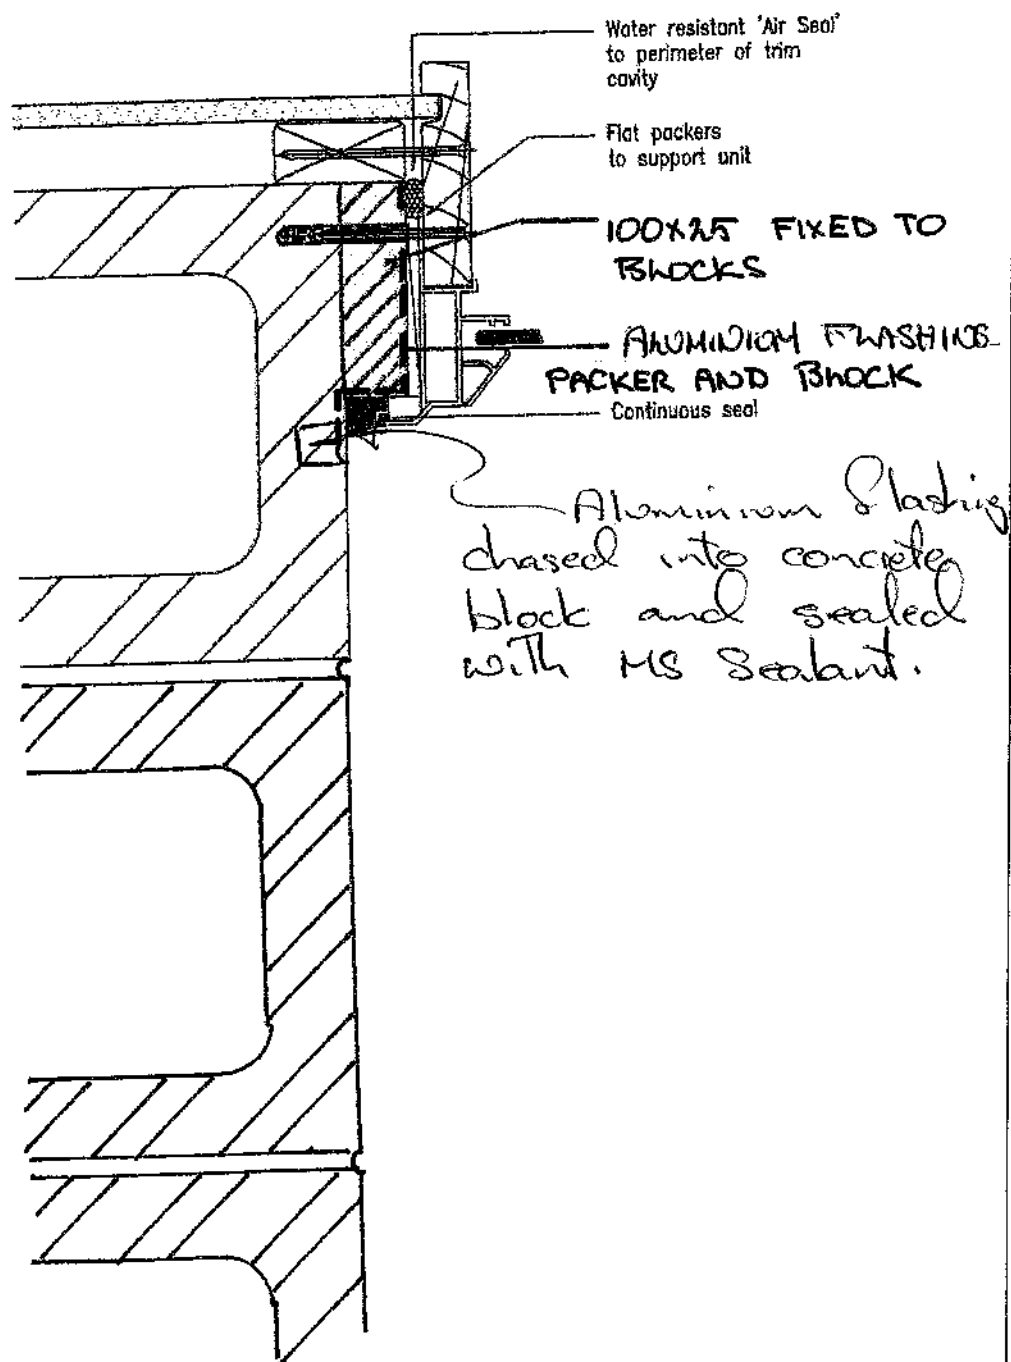 Water resistant 'Air Seal'
to perimeter of trim
cavity
Flat packers
to support unit
100X25 FIXED TO
BLOCKS
ALUMINIUM FLASHING
PACKER AND BLOCK
Continuous seal
Aluminium flashing
chased into concrete
block and sealed
with MS Sealant.